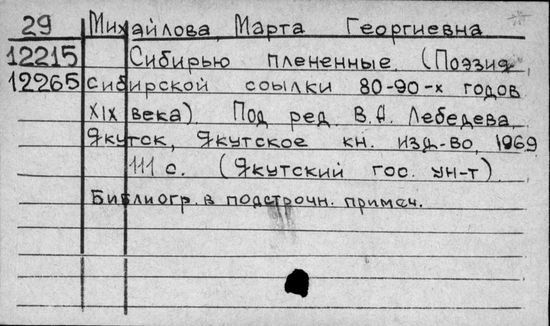 29 Михайлова Марта Георгиевна
12215 Сибирью плененные. (Поэзия
12265 сибирской ссылки 80-90-х годов
XIX века). Под ред. В.А. Лебедева.
Якутск, Якутское кн. изд-во, 1969
111 с. (Якутский гос. ун-т).
Библиогр. в подстрочн. примеч.